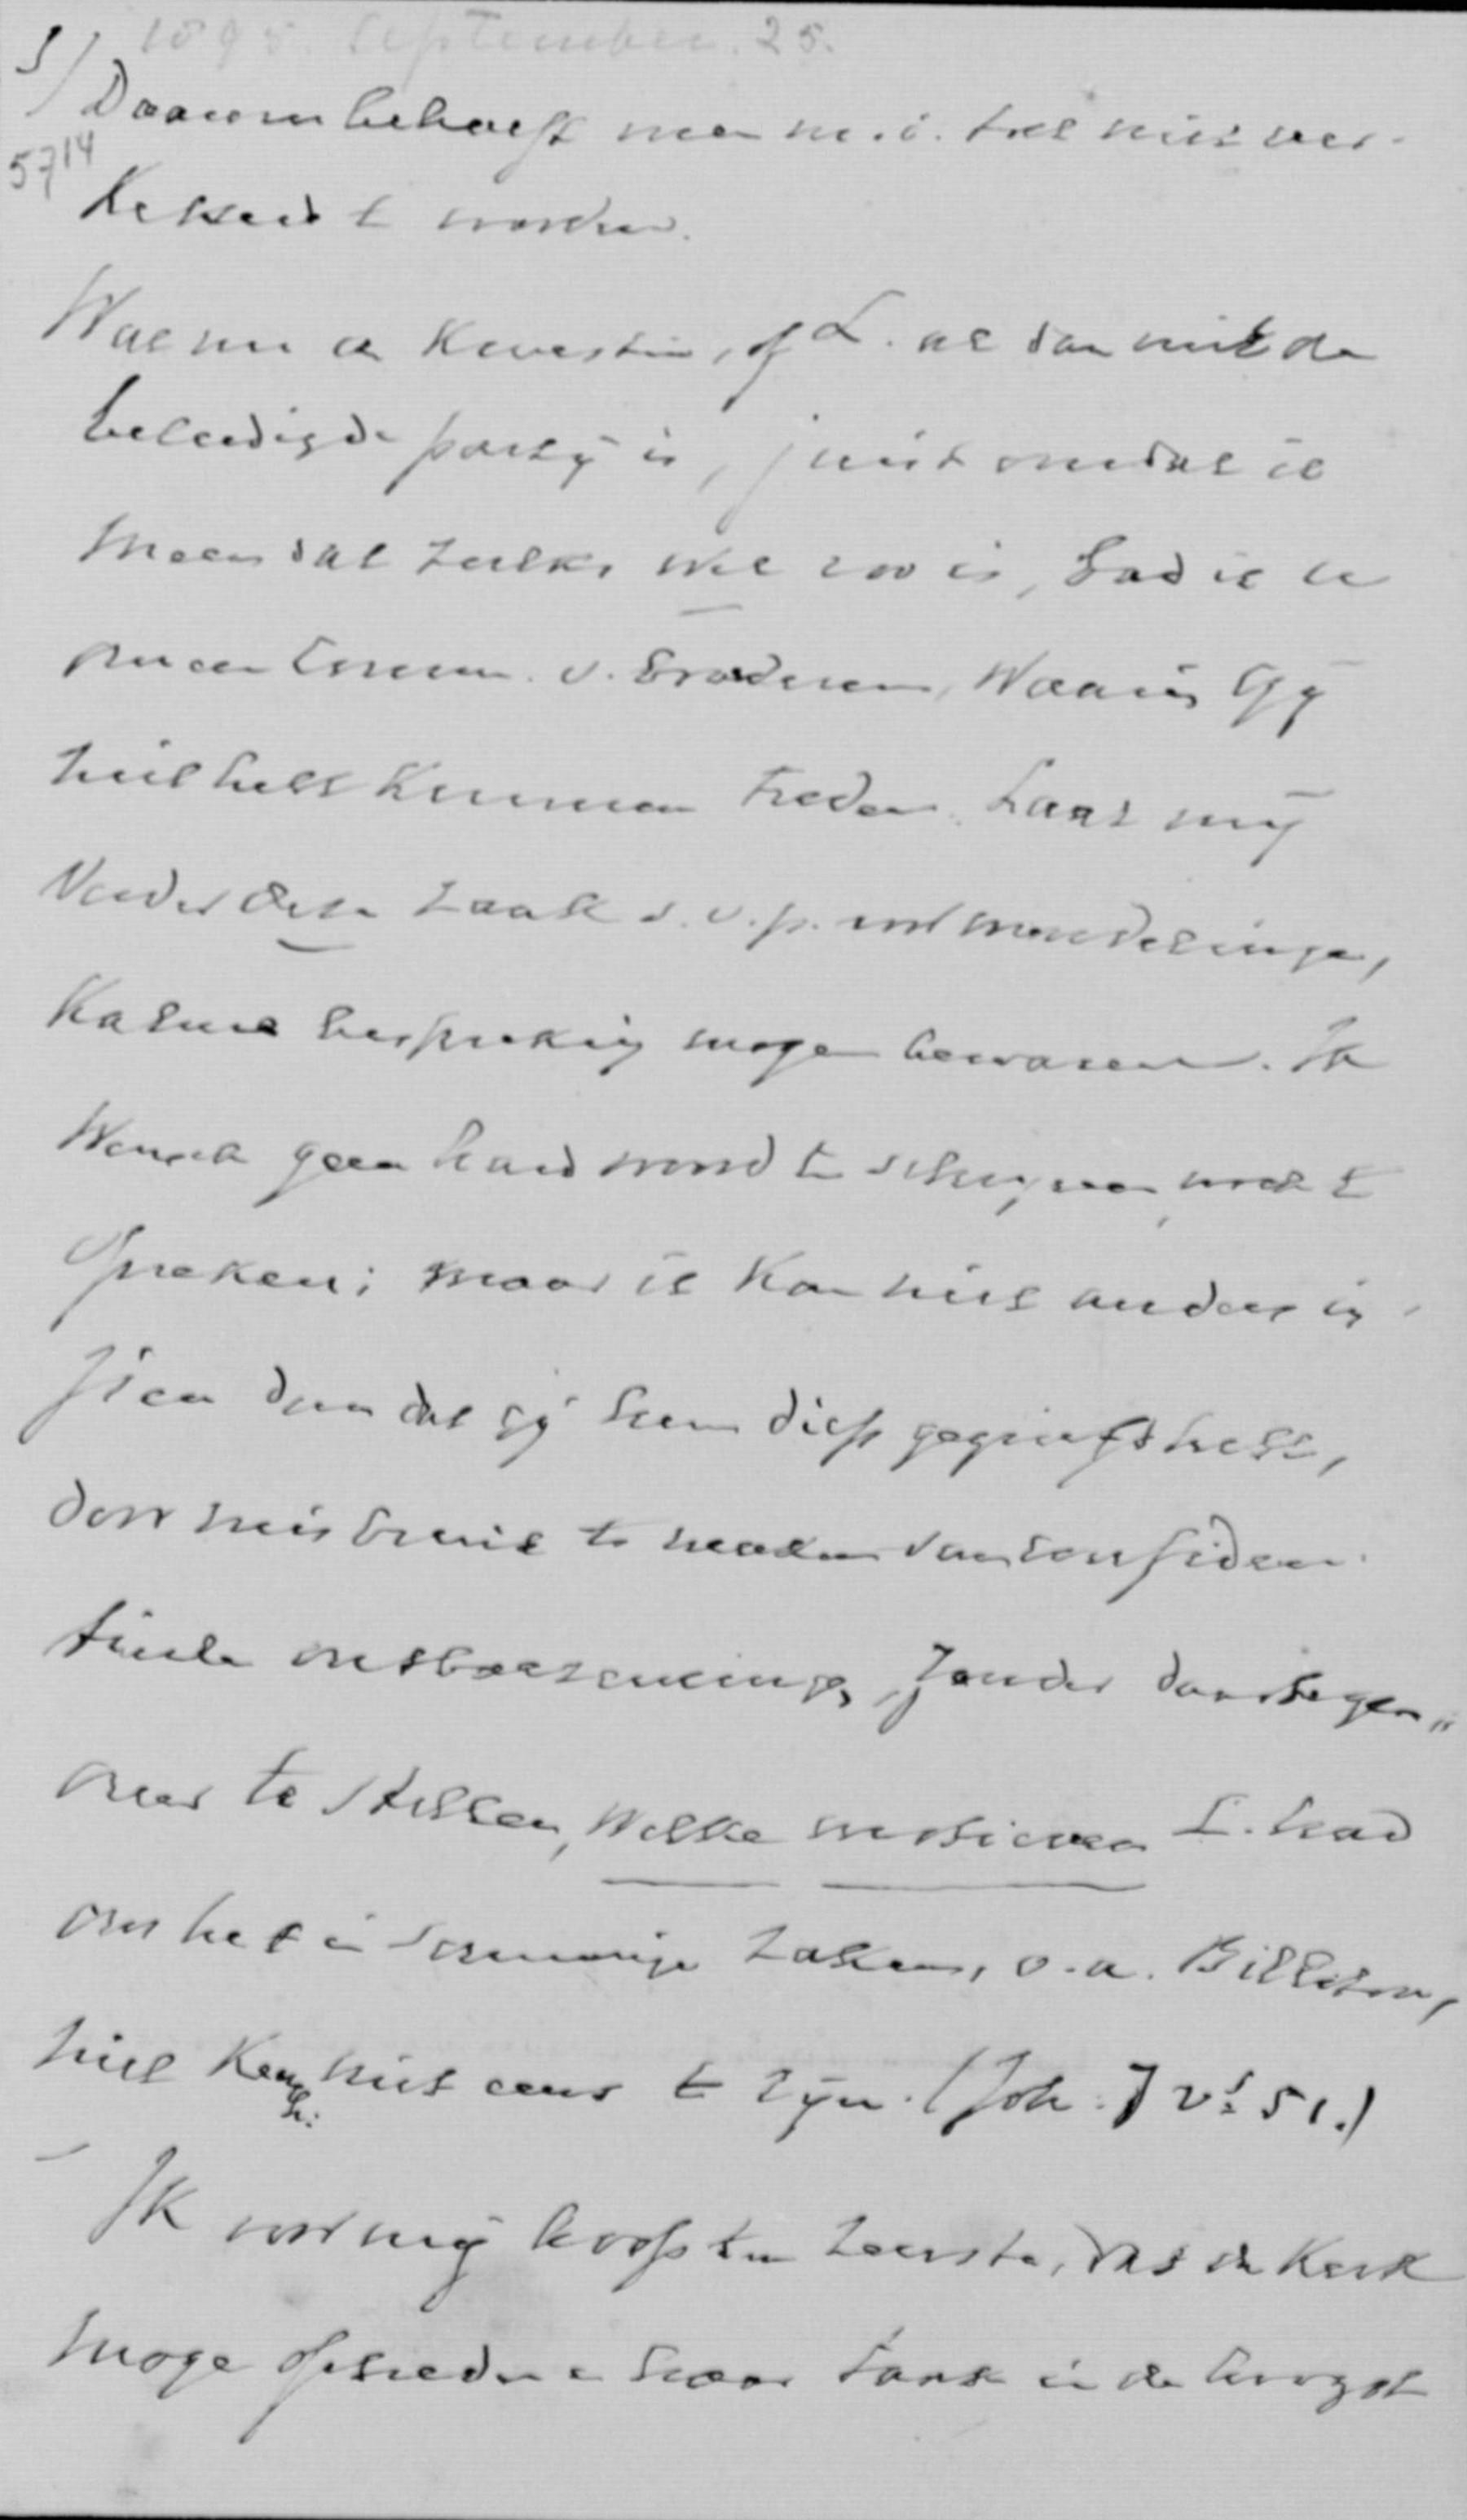 1895. September. 25.
5/ Daarom behoeft men m.i. niet ver-
5714
ketterd te worden.
Wat nu de kwestie, of L. al dan niet de
beleedigde partij is, juist omdat ik
meen dat zulks wel zoo is, bad ik u
om een Comm. v. broederen, waarin Gij
niet hebt kunnen treden. Laat mij
verder deze zaak s.v.p. voor mondelinge,
kalme bespreking mogen bewaren. Ik
wensch geen hard woord te schrijven, noch te
spreken; maar ik kan niet anders in-
zien dan dat gij hem diep gegriefd hebt,
door misbruik te maken van confiden-
tieele ontboezemingen, zonder daartegen„
over te stellen, welke motieven L. had
om het in sommige zaken, o.a. Billiton,
niet h: niet eens te zijn. (Joh: 7 vs 51.)
Ik voor mij hoop ten zeerste, dat de Kerk
moge optreden en haar taak in de hoogst